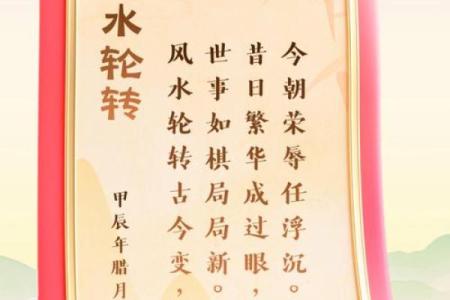 水轮转
风水轮转古今变，
世事如棋局局新。
昔日繁华成过眼，
今朝荣辱任浮沉。
甲辰年腊月